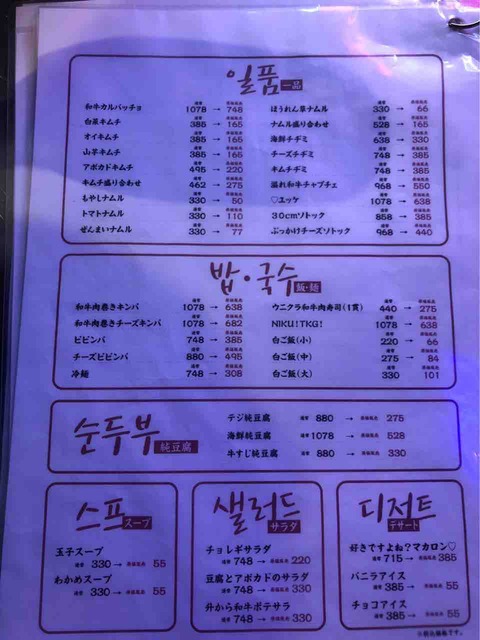 일품 一品
和牛カルパッチョ 1078 → 748
白菜キムチ 385 → 165
オイキムチ 385 → 165
山芋キムチ 385 → 165
アボカドキムチ 495 → 220
キムチ盛り合わせ 462 → 275
もやしナムル 330 → 50
トマトナムル 330 → 110
ぜんまいナムル 330 → 77
ほうれん草ナムル 330 → 66
ナムル盛り合わせ 528 → 165
海鮮チヂミ 638 → 330
チーズチヂミ 748 → 385
キムチチヂミ 748 → 385
溺れ和牛チャプチェ 968 → 550
♡ユッケ 1078 → 638
30cmソトック 858 → 385
ぶっかけチーズソトック 968 → 440
밥·국수 飯・麺
和牛肉巻きキンパ 1078 → 638
和牛肉巻きチーズキンパ 1078 → 682
ビビンバ 748 → 385
チーズビビンバ 880 → 495
冷麺 748 → 308
ウニクラ和牛肉寿司(1貫) 440 → 275
NIKU!TKG! 1078 → 638
白ご飯(小) 220 → 66
白ご飯(中) 275 → 84
白ご飯(大) 330 101
순두부 純豆腐
テジ純豆腐 通常 880 → 275
海鮮純豆腐 通常 1078 → 528
牛すじ純豆腐 通常 880 → 330
스프 スープ
玉子スープ
通常 330 → 55
わかめスープ
通常 330 → 55
샐러드 サラダ
チョレギサラダ
通常 748 → 220
豆腐とアボカドのサラダ
通常 748 → 330
升から和牛ポテサラ
通常 748 → 330
디저트 デザート
好きですよね?マカロン♡
通常 715 → 385
バニラアイス
通常 385 → 55
チョコアイス
通常 385 → 55